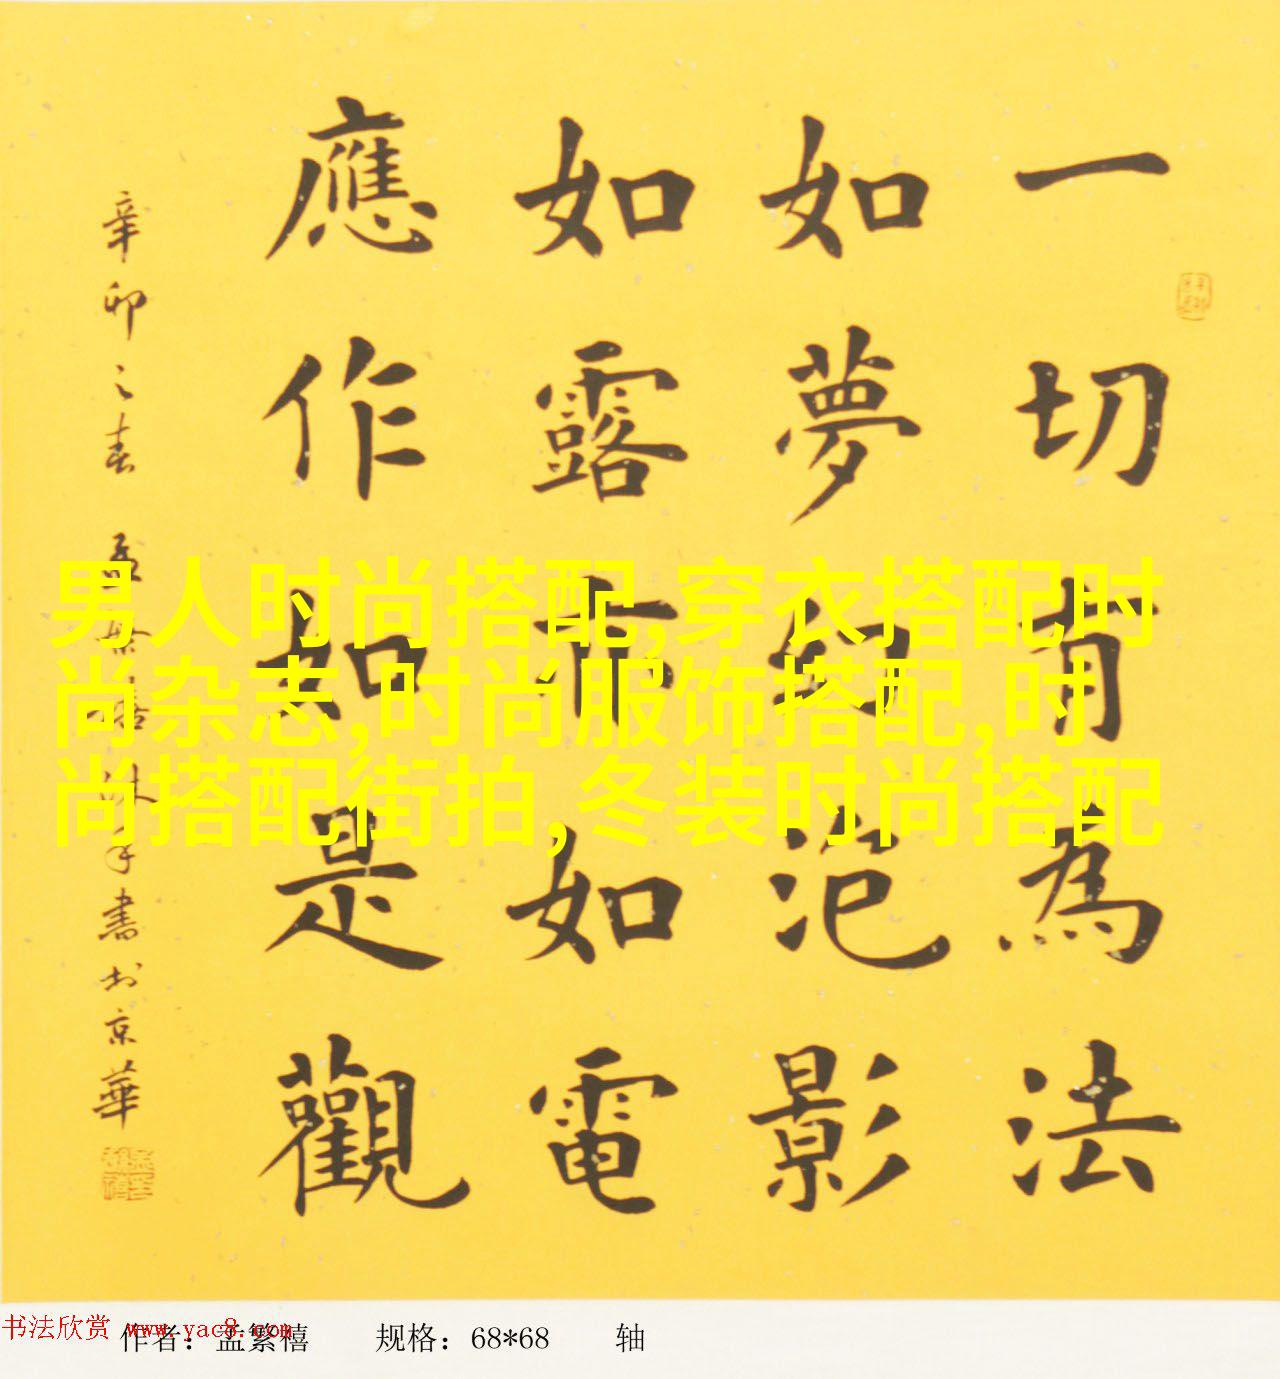 一切有為法
如夢幻泡影
如露亦如電
應作如是觀
辛卯之春 孟繁禧沐手書於京華
男人时尚搭配,穿衣搭配时
尚杂志,时尚服饰搭配,时
尚搭配街拍,冬装时尚搭配
书法欣赏 www.yac8.com
作者：孟繁禧 规格：68*68 轴